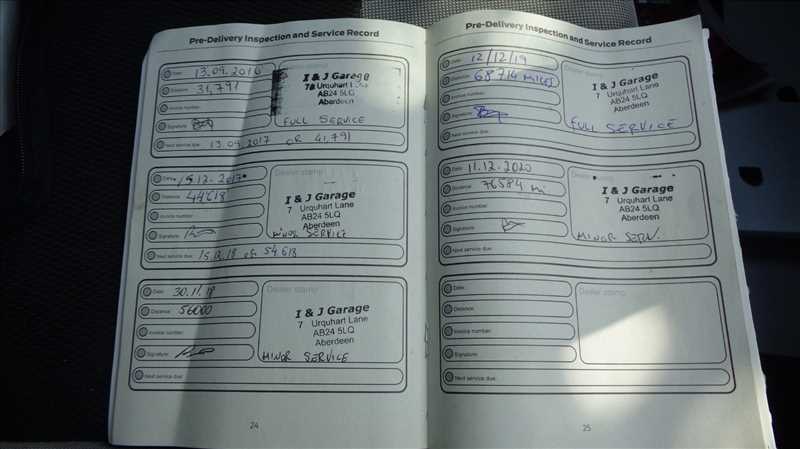 Pre-Delivery Inspection and Service Record
Date: 13.09.2016
Distance: 31,791
Invoice number:
Signature:
Next service due: 13.09.2017 OR 41,791
Dealer stamp
I & J Garage
7 Urquhart Lane
AB24 5LQ
Aberdeen
FULL SERVICE
Date: 15.12.2017
Distance: 44618
Invoice number:
Signature:
Next service due: 15.12.18 or 54618
Dealer stamp
I & J Garage
7 Urquhart Lane
AB24 5LQ
Aberdeen
MINOR SERVICE
Date: 30.11.18
Distance: 56000
Invoice number:
Signature:
Next service due:
Dealer stamp
I & J Garage
7 Urquhart Lane
AB24 5LQ
Aberdeen
MINOR SERVICE
24
Pre-Delivery Inspection and Service Record
Date: 12/12/19
Distance: 68714 MILES
Invoice number:
Signature:
Next service due:
Dealer stamp
I & J Garage
7 Urquhart Lane
AB24 5LQ
Aberdeen
FULL SERVICE
Date: 11.12.2020
Distance: 76584 mi.
Invoice number:
Signature:
Next service due:
Dealer stamp
I & J Garage
7 Urquhart Lane
AB24 5LQ
Aberdeen
MINOR SERV.
Date:
Distance:
Invoice number:
Signature:
Next service due:
Dealer stamp
25